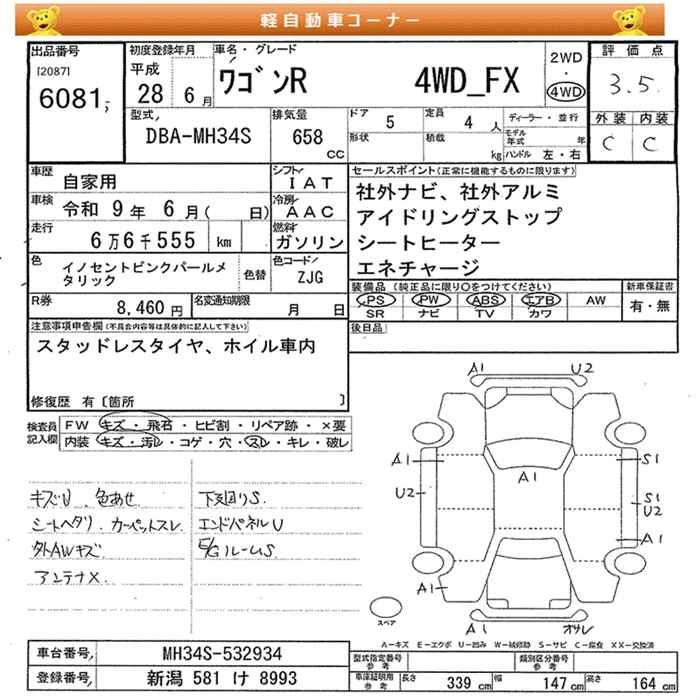 軽自動車コーナー
出品番号
[2087]
6081
初度登録年月
平成
28 6月
車名・グレード
ワゴンR 4WD_FX
2WD
・
4WD
評価点
3.5
外装 内装
C C
型式
DBA-MH34S
排気量
658
CC
ドア 5
形状
定員 4 人
積載 kg
ディーラー・並行
モデル年式 年
ハンドル 左・右
車歴 自家用
シフト IAT
車検 令和 9年 6月( 日)
冷房 AAC
走行 6万6千555 km
燃料 ガソリン
色 イノセントピンクパールメタリック
色替
色コード ZJG
R券 8,460 円
名変通知期限 月 日
セールスポイント(正常に機能するものに限ります)
社外ナビ、社外アルミ
アイドリングストップ
シートヒーター
エネチャージ
装備品(純正品に限り○をつけてください)
新車保証書
PS PW ABS エアB AW
SR ナビ TV カワ
有・無
後日品
注意事項申告欄(不具合内容等は具体的に記入して下さい)
スタッドレスタイヤ、ホイル車内
修復歴 有〔箇所 〕
検査員
記入欄
FW キズ・飛石・ヒビ割・リペア跡・×要
内装 キズ・汚レ・コゲ・穴・スレ・キレ・破レ
キズU 色あせ
シートヘタリ カーペットスレ
外AWキズ
アンテナX
下支回りS
エンドパネルU
E/GルームS
A1 U2
A1
A1
U2
S1
S
U2
A1
A1
A1 オサレ
スペア
A-キズ E-エクボ U-凹み W-補修跡 S-サビ C-腐食 XX-交換済
車台番号 MH34S-532934
登録番号 新潟 581 け 8993
型式指定番号
参考
類別区分番号
参考
車庫証明用
参考
長さ 339 cm
幅 147 cm
高さ 164 cm